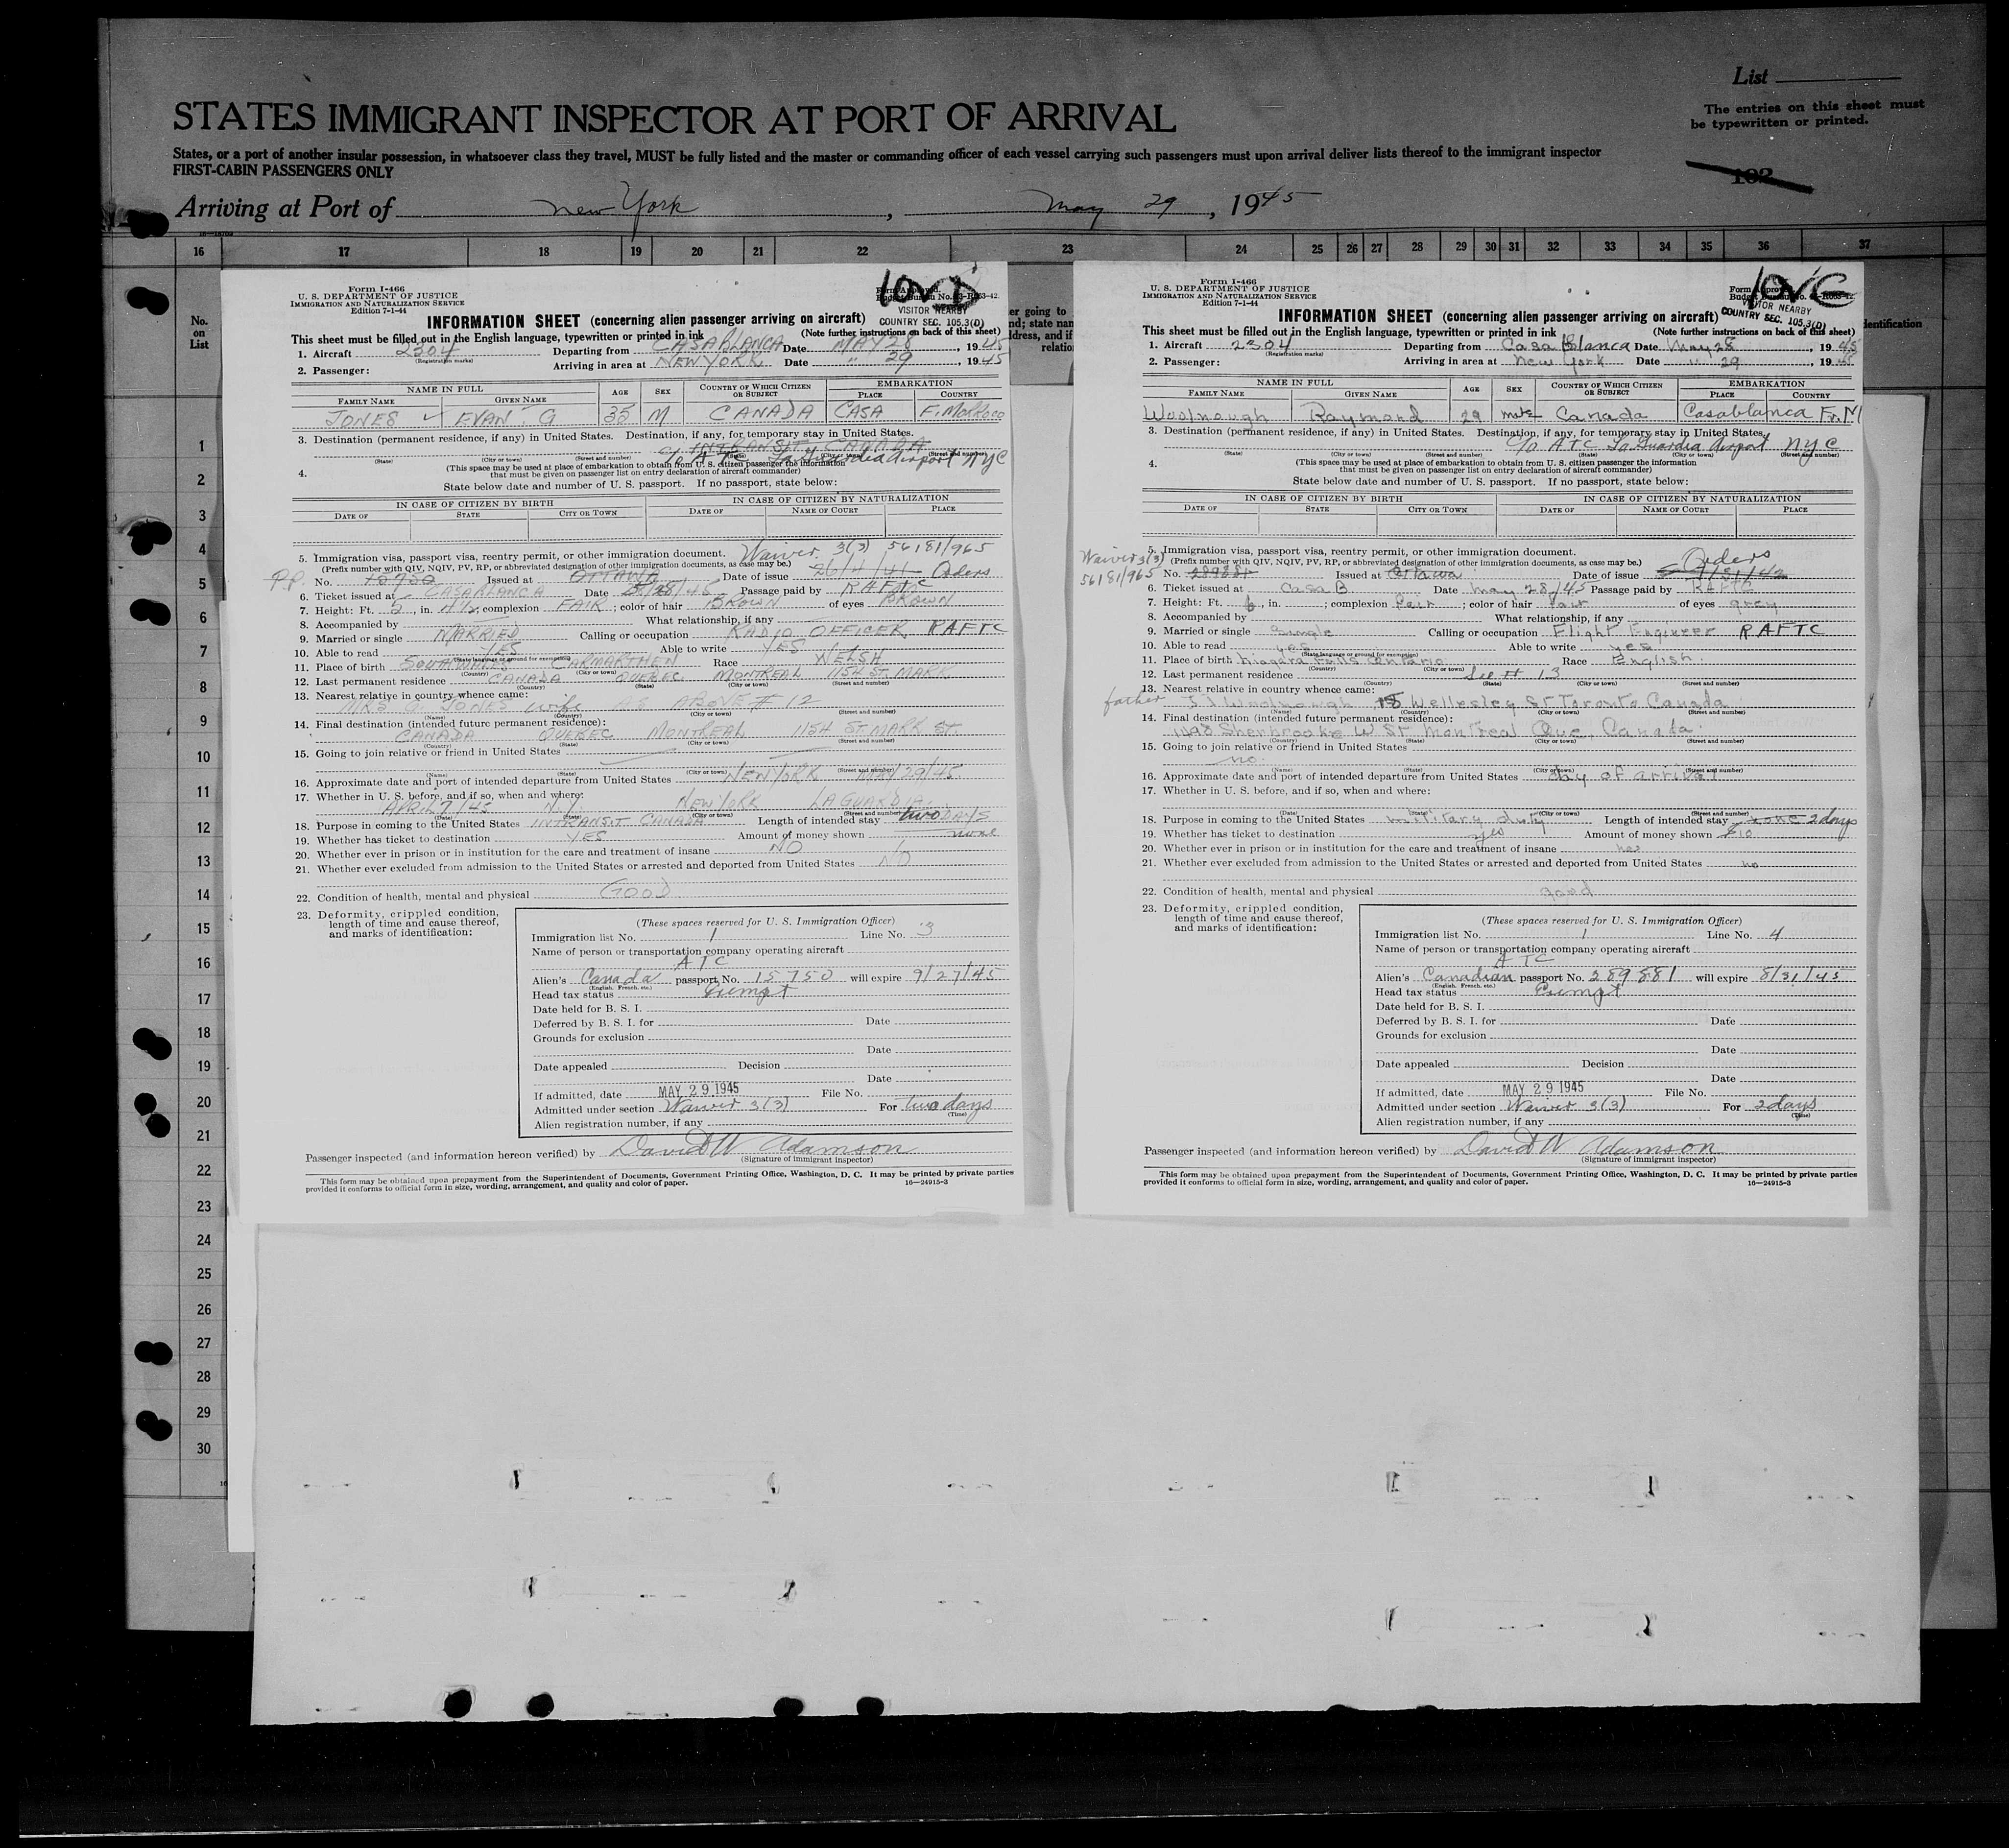 List
STATES IMMIGRANT INSPECTOR AT PORT OF ARRIVAL
The entries on this sheet must
be typewritten or printed.
States, or a port of another insular possession, in whatsoever class they travel, MUST be fully listed and the master or commanding officer of each vessel carrying such passengers must upon arrival deliver lists thereof to the immigrant inspector
FIRST-CABIN PASSENGERS ONLY
Arriving at Port of New York, May 29, 1945
16 17 18 19 20 21 22 23 24 25 26 27 28 29 30 31 32 33 34 35 36 37
No.
on
List
1
2
3
4
5
6
7
8
9
10
11
12
13
14
15
16
17
18
19
20
21
22
23
24
25
26
27
28
29
30
Form I-466
U. S. DEPARTMENT OF JUSTICE
IMMIGRATION AND NATURALIZATION SERVICE
Edition 7-1-44
VISITOR NEARBY
COUNTRY SEC. 105.3(D)
INFORMATION SHEET (concerning alien passenger arriving on aircraft)
This sheet must be filled out in the English language, typewritten or printed in ink (Note further instructions on back of this sheet)
1. Aircraft 2304 Departing from CASABLANCA Date MAY 28, 1945
(Registration marks)
2. Passenger: Arriving in area at NEW YORK Date " 29, 1945
NAME IN FULL AGE SEX COUNTRY OF WHICH CITIZEN OR SUBJECT EMBARKATION
FAMILY NAME GIVEN NAME PLACE COUNTRY
JONES EVAN. G 35 M CANADA CASA F. MORROCO
3. Destination (permanent residence, if any) in United States. Destination, if any, for temporary stay in United States.
INTRANSIT CANADA
c/o ATC La Guardia Airport NYC
4. (This space may be used at place of embarkation to obtain from U. S. citizen passenger the information
that must be given on passenger list on entry declaration of aircraft commander)
State below date and number of U. S. passport. If no passport, state below:
IN CASE OF CITIZEN BY BIRTH IN CASE OF CITIZEN BY NATURALIZATION
DATE OF STATE CITY OR TOWN DATE OF NAME OF COURT PLACE
5. Immigration visa, passport visa, reentry permit, or other immigration document. Waiver 3(3) 56181/965
(Prefix number with QIV, NQIV, PV, RP, or abbreviated designation of other immigration documents, as case may be.)
P.P. No. 15750 Issued at OTTAWA Date of issue 26/4/41 Orders
6. Ticket issued at CASABLANCA Date 5/28/45 Passage paid by RAFTC
7. Height: Ft. 5, in. 4½; complexion FAIR; color of hair BROWN of eyes BROWN
8. Accompanied by What relationship, if any
9. Married or single MARRIED Calling or occupation RADIO OFFICER RAFTC
10. Able to read YES Able to write YES
11. Place of birth SOUTH WALES CARMARTHEN Race WELSH
12. Last permanent residence CANADA QUEBEC MONTREAL 1154 ST. MARK
13. Nearest relative in country whence came:
MRS. JONES wife AS ABOVE # 12
14. Final destination (intended future permanent residence):
CANADA QUEBEC MONTREAL 1154 ST MARK ST.
15. Going to join relative or friend in United States
16. Approximate date and port of intended departure from United States NEW YORK MAY 29/45
17. Whether in U. S. before, and if so, when and where:
APRIL 7/45 N.Y. NEW YORK LAGUARDIA
18. Purpose in coming to the United States INTRANSIT CANADA Length of intended stay two DAYS
19. Whether has ticket to destination YES Amount of money shown none
20. Whether ever in prison or in institution for the care and treatment of insane NO
21. Whether ever excluded from admission to the United States or arrested and deported from United States NO
22. Condition of health, mental and physical GOOD
23. Deformity, crippled condition,
length of time and cause thereof,
and marks of identification:
(These spaces reserved for U. S. Immigration Officer)
Immigration list No. 1 Line No. 3
Name of person or transportation company operating aircraft
ATC
Alien's Canada passport No. 15750 will expire 9/27/45
(English, French, etc.)
Head tax status Exempt
Date held for B. S. I.
Deferred by B. S. I. for Date
Grounds for exclusion
Date
Date appealed Decision
Date
If admitted, date MAY 29 1945 File No.
Admitted under section Waiver 3(3) For two days
(Time)
Alien registration number, if any
Passenger inspected (and information hereon verified) by David W Adamson
(Signature of immigrant inspector)
This form may be obtained upon prepayment from the Superintendent of Documents, Government Printing Office, Washington, D. C. It may be printed by private parties
provided it conforms to official form in size, wording, arrangement, and quality and color of paper. 16—24915-3
Form I-466
U. S. DEPARTMENT OF JUSTICE
IMMIGRATION AND NATURALIZATION SERVICE
Edition 7-1-44
VISITOR NEARBY
COUNTRY SEC. 105.3(D)
INFORMATION SHEET (concerning alien passenger arriving on aircraft)
This sheet must be filled out in the English language, typewritten or printed in ink (Note further instructions on back of this sheet)
1. Aircraft 2304 Departing from Casa Blanca Date May 28, 1945
(Registration marks)
2. Passenger: Arriving in area at New York Date " 29, 1945
NAME IN FULL AGE SEX COUNTRY OF WHICH CITIZEN OR SUBJECT EMBARKATION
FAMILY NAME GIVEN NAME PLACE COUNTRY
Woolnough Raymond 29 male Canada Casablanca Fr. M
3. Destination (permanent residence, if any) in United States. Destination, if any, for temporary stay in United States.
c/o ATC La Guardia Airport NYC
4. (This space may be used at place of embarkation to obtain from U. S. citizen passenger the information
that must be given on passenger list on entry declaration of aircraft commander)
State below date and number of U. S. passport. If no passport, state below:
IN CASE OF CITIZEN BY BIRTH IN CASE OF CITIZEN BY NATURALIZATION
DATE OF STATE CITY OR TOWN DATE OF NAME OF COURT PLACE
Waiver 3(3)
56181/965
5. Immigration visa, passport visa, reentry permit, or other immigration document. Orders
(Prefix number with QIV, NQIV, PV, RP, or abbreviated designation of other immigration documents, as case may be.)
No. Issued at Ottawa Date of issue
6. Ticket issued at Casa B Date May 28/45 Passage paid by RAFTC
7. Height: Ft. 6, in. ; complexion Fair; color of hair Fair of eyes grey
8. Accompanied by What relationship, if any
9. Married or single Single Calling or occupation Flight Engineer RAFTC
10. Able to read yes Able to write yes
11. Place of birth Niagara Falls Ontario Race English
12. Last permanent residence See # 13
13. Nearest relative in country whence came:
father Woolnough 18 Wellesley St Toronto Canada
14. Final destination (intended future permanent residence):
Sherbrooke W St. Montreal Que. Canada
15. Going to join relative or friend in United States
no.
16. Approximate date and port of intended departure from United States day of arrival
17. Whether in U. S. before, and if so, when and where:
18. Purpose in coming to the United States military duty Length of intended stay 2 days
19. Whether has ticket to destination yes Amount of money shown $10
20. Whether ever in prison or in institution for the care and treatment of insane
21. Whether ever excluded from admission to the United States or arrested and deported from United States no
22. Condition of health, mental and physical good
23. Deformity, crippled condition,
length of time and cause thereof,
and marks of identification:
(These spaces reserved for U. S. Immigration Officer)
Immigration list No. 1 Line No. 4
Name of person or transportation company operating aircraft
ATC
Alien's Canadian passport No. 289881 will expire 8/31/45
(English, French, etc.)
Head tax status Exempt
Date held for B. S. I.
Deferred by B. S. I. for Date
Grounds for exclusion
Date
Date appealed Decision
Date
If admitted, date MAY 29 1945 File No.
Admitted under section Waiver 3(3) For 2 days
(Time)
Alien registration number, if any
Passenger inspected (and information hereon verified) by David W Adamson
(Signature of immigrant inspector)
This form may be obtained upon prepayment from the Superintendent of Documents, Government Printing Office, Washington, D. C. It may be printed by private parties
provided it conforms to official form in size, wording, arrangement, and quality and color of paper. 16—24915-3